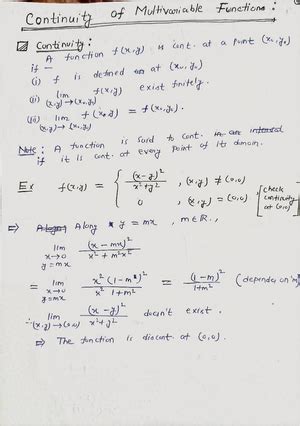 Continuity of Multivariable Functions :
Continuity :
A function f(x,y) is cont. at a point (x₀,y₀)
if —
(i) f is defined at (x₀,y₀)
(ii) lim f(x,y) exist finitely.
(x,y)→(x₀,y₀)
(iii) lim f(x,y) = f(x₀,y₀).
(x,y)→(x₀,y₀)
Note : A function is said to cont.
if it is cont. at every point of its domain.
Ex f(x,y) = { (x-y)²/(x²+y²) , (x,y) ≠ (0,0)
0 , (x,y) = (0,0) [check continuity at (0,0)]
⇒ Along y = mx , m∈ℝ.,
lim (x-mx)²/(x²+m²x²)
x→0
y=mx
= lim x²(1-m)²/x² 1+m² = (1-m)²/1+m² (depends on 'm')
x→0
y=mx
∴ lim (x-y)²/x²+y² doesn't exist.
(x,y)→(0,0)
⇒ The function is discont at (0,0).